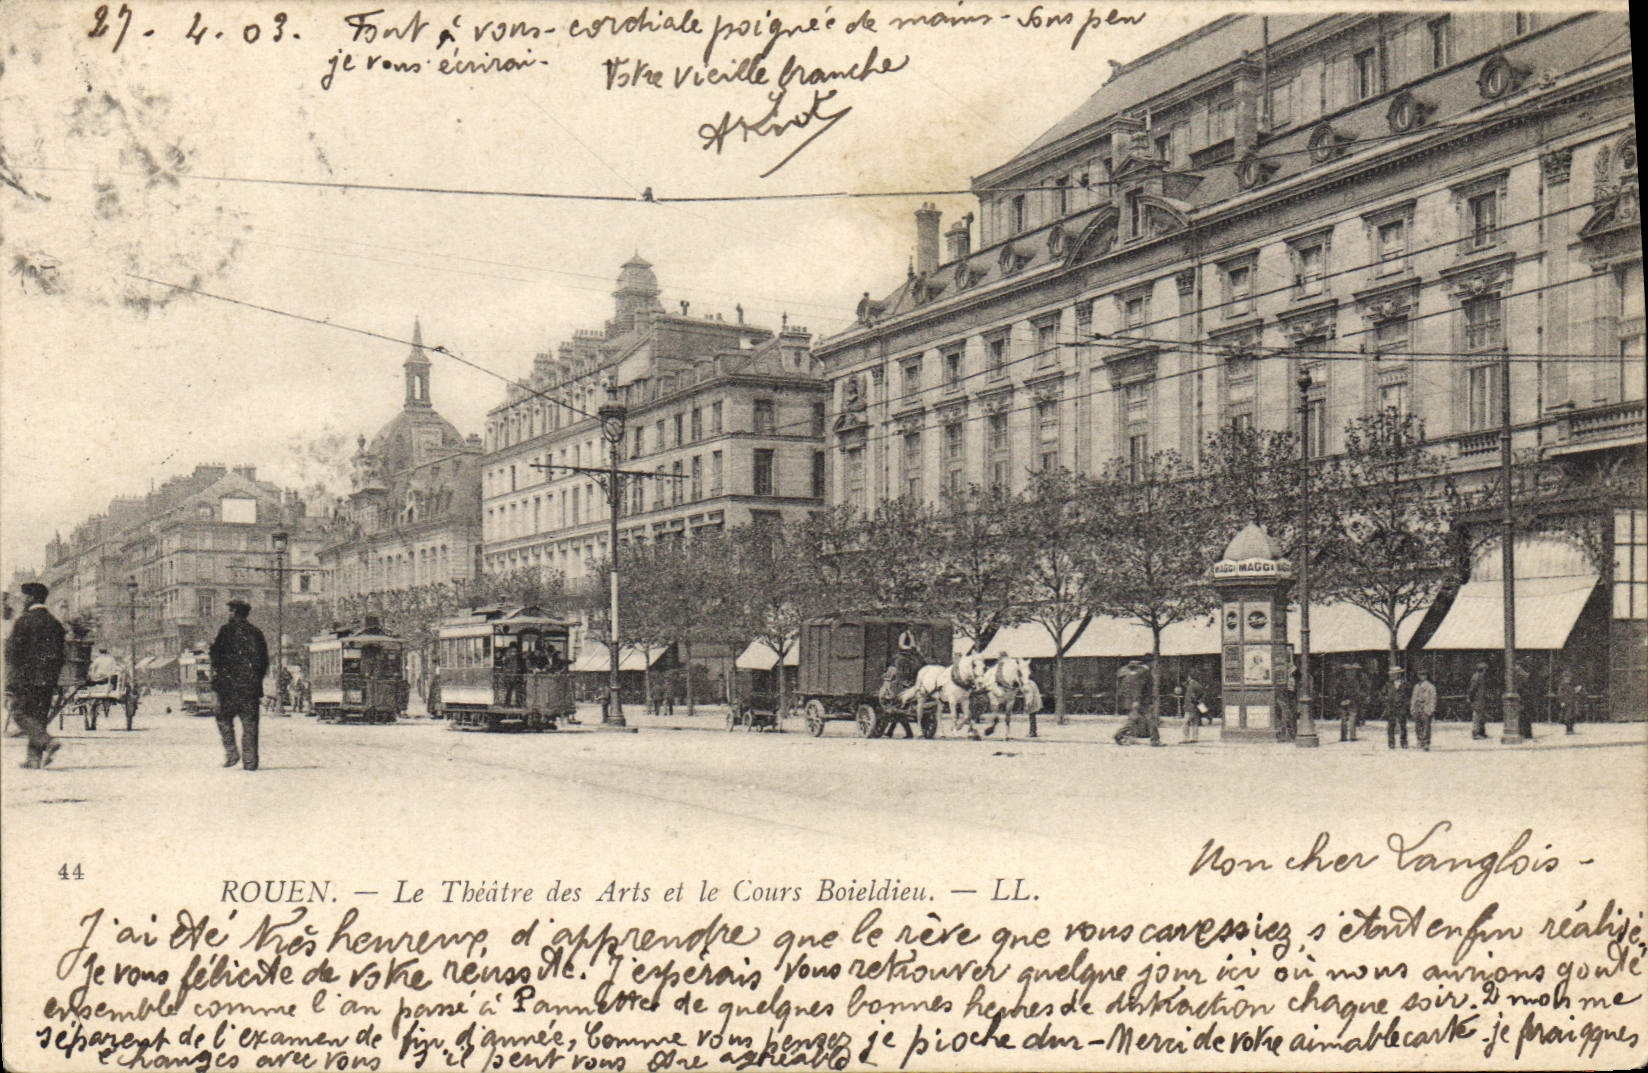 27. 4. 03. Tout à vous - cordiale poignée de mains - Sous peu
je vous écrirai -
Votre vieille branche
MAGGI MAGGI
44
ROUEN. — Le Théâtre des Arts et le Cours Boieldieu. — LL.
Mon cher Langlois -
J'ai été très heureux d'apprendre que le rêve que vous caressiez s'étant enfin réalisé,
Je vous félicite de votre réussite. J'espérais vous retrouver quelque jour ici où nous aurions goûté
ensemble comme l'an passé à de quelques bonnes heures de distraction chaque soir. 2 mois me
séparent de l'examen de fin d'année, Comme vous pensez je pioche dur - Merci de votre aimable carte. je ferai qques
échanges avec vous s'il peut vous être agréable